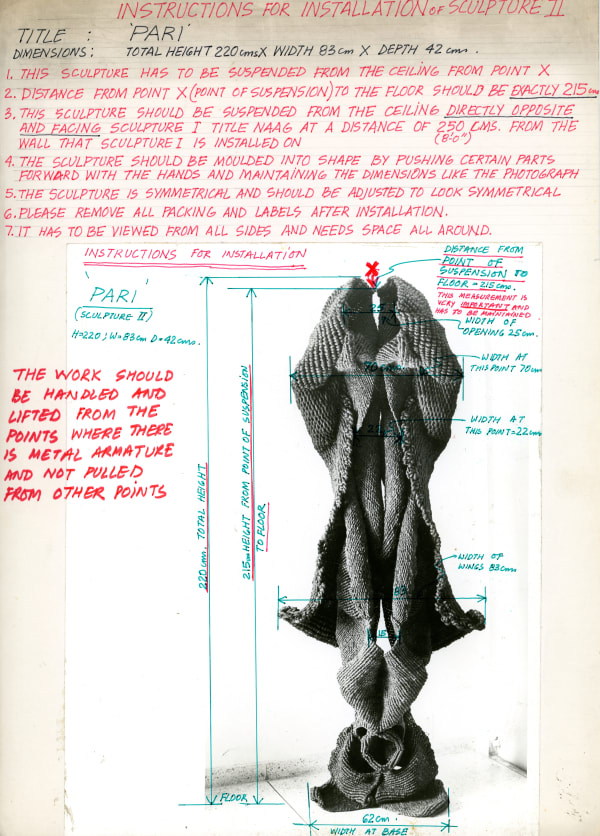 INSTRUCTIONS FOR INSTALLATION OF SCULPTURE II
TITLE : 'PARI'
DIMENSIONS: TOTAL HEIGHT 220 cms X WIDTH 83 cm X DEPTH 42 cms.
1. THIS SCULPTURE HAS TO BE SUSPENDED FROM THE CEILING FROM POINT X
2. DISTANCE FROM POINT X (POINT OF SUSPENSION) TO THE FLOOR SHOULD BE EXACTLY 215 cms
3. THIS SCULPTURE SHOULD BE SUSPENDED FROM THE CEILING DIRECTLY OPPOSITE
AND FACING SCULPTURE I TITLE NAAG AT A DISTANCE OF 250 CMS. FROM THE
WALL THAT SCULPTURE I IS INSTALLED ON (8'-0")
4. THE SCULPTURE SHOULD BE MOULDED INTO SHAPE BY PUSHING CERTAIN PARTS
FORWARD WITH THE HANDS AND MAINTAINING THE DIMENSIONS LIKE THE PHOTOGRAPH
5. THE SCULPTURE IS SYMMETRICAL AND SHOULD BE ADJUSTED TO LOOK SYMMETRICAL
6. PLEASE REMOVE ALL PACKING AND LABELS AFTER INSTALLATION.
7. IT HAS TO BE VIEWED FROM ALL SIDES AND NEEDS SPACE ALL AROUND.
INSTRUCTIONS FOR INSTALLATION
'PARI'
(SCULPTURE II)
H=220; W=83cm D=42cms.
THE WORK SHOULD
BE HANDLED AND
LIFTED FROM THE
POINTS WHERE THERE
IS METAL ARMATURE
AND NOT PULLED
FROM OTHER POINTS
X
DISTANCE FROM
POINT OF
SUSPENSION TO
FLOOR = 215 cms.
THIS MEASUREMENT IS
VERY IMPORTANT AND
HAS TO BE MAINTAINED
25
WIDTH OF
OPENING 25cm.
70 cm
WIDTH AT
THIS POINT 70cm
WIDTH AT
THIS POINT=22cm
WIDTH OF
WINGS 83cms
83
15
220 cms. TOTAL HEIGHT
215cm HEIGHT FROM POINT OF SUSPENSION
TO FLOOR
FLOOR
62cm
WIDTH AT BASE